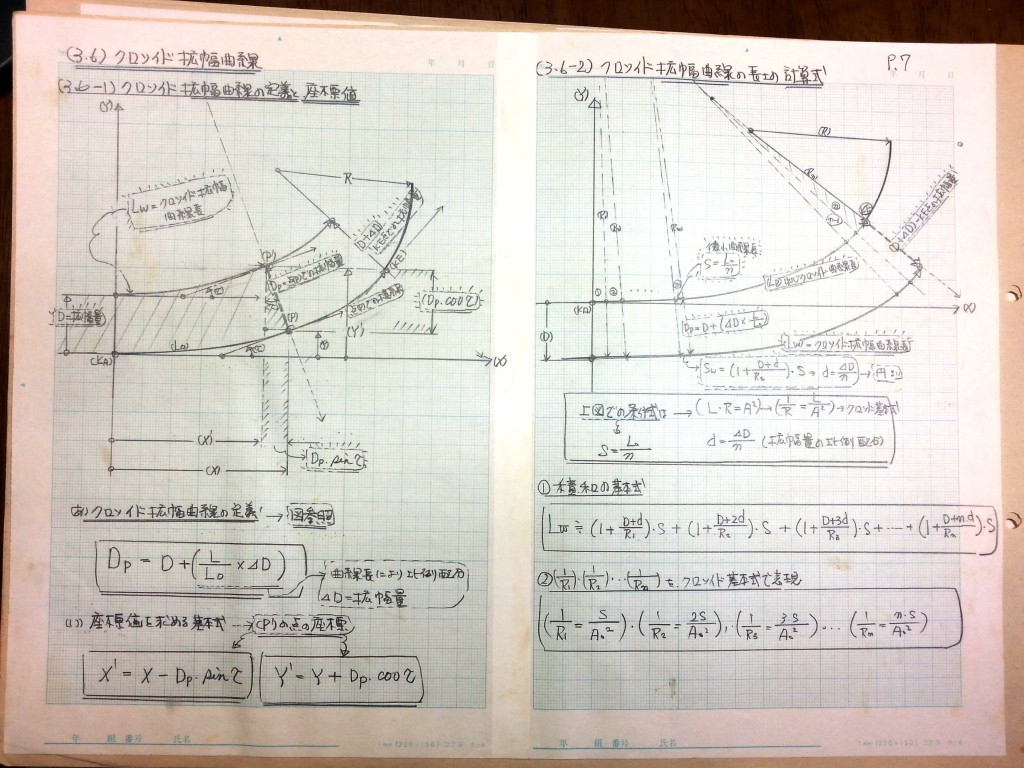 (3.6) クロソイド拡幅曲線
(3.6-1) クロソイド拡幅曲線の定義と座標値
(Y)
Lw=クロソイド拡幅
曲線長
R
D+ΔD
(P')
(P)
(KE)
(Dp・cosτ)
D=拡幅量
(Lo)
(Y)
(Y')
(KA)
(X)
(X')
(X)
Dp・sinτ
あ) クロソイド拡幅曲線の定義 → 図参照
Dp = D + (L/Lo × ΔD)
曲線長により比例配分
ΔD=拡幅量
い) 座標値を求める基本式 → (P')の点の座標
X' = X − Dp・sinτ
Y' = Y + Dp・cosτ
年 組 番号 氏名
(3.6-2) クロソイド拡幅曲線の長さの計算式
P.7
年 月 日
(Y)
(R)
微小曲線長
S=Lo/n
① ② ……
(X)
(D)
Dp=D+(ΔD×L/Lo)
Lw=クロソイド拡幅曲線長
Sw=(1+D+d/R2)・S
d=ΔD/n
(KA)
上図での条件式は → (L・R=A²) → (1/R=L/A²) → クロソイド基本式
S=L/n
d=ΔD/n (拡幅量の比例配分)
① 積和の基本式
Lw ≒ (1+D+d/R1)・S + (1+D+2d/R2)・S + (1+D+3d/R3)・S + ‥‥ + (1+D+n・d/Rn)・S
② (1/R1)・(1/R2)‥‥(1/Rn) を、クロソイド基本式で表現
(1/R1=S/Ao²)・(1/R2=2S/Ao²)、(1/R3=3・S/Ao²)‥‥(1/Rn=n・S/Ao²)
年 組 番号 氏名